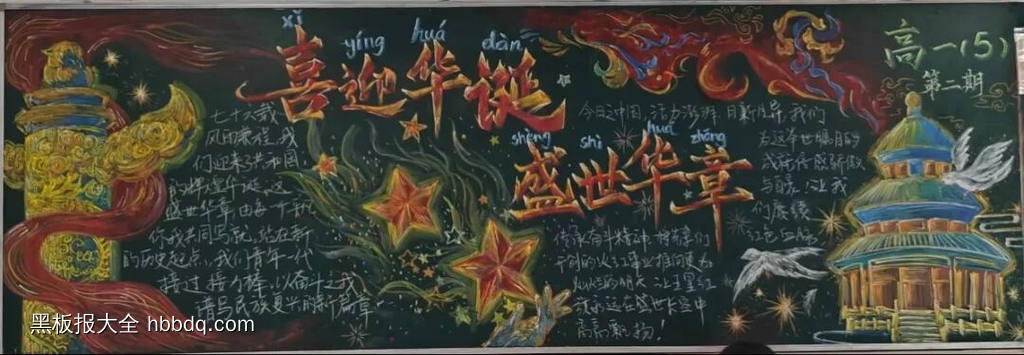 xǐ yíng huá dàn
喜迎华诞
shèng shì huá zhāng
盛世华章
高一(5)
第二期
七十六载
风雨兼程，我
们迎来共和国
的辉煌华诞，这
盛世华章，由每一个
你我共同写就，站在新
的历史起点，我们青年一代
接过接力棒，以奋斗之我，
谱写民族复兴的新篇章。
今日之中国，活力澎湃，日新月异，我们
为这举世瞩目的
感到骄傲
与自豪，让我
们赓续
红色血脉，
传承奋斗精神，将前辈们
开创的火红事业推向更为
的明天，让五星红
旗永远在盛世长空中
高高飘扬！
黑板报大全 hbbdq.com